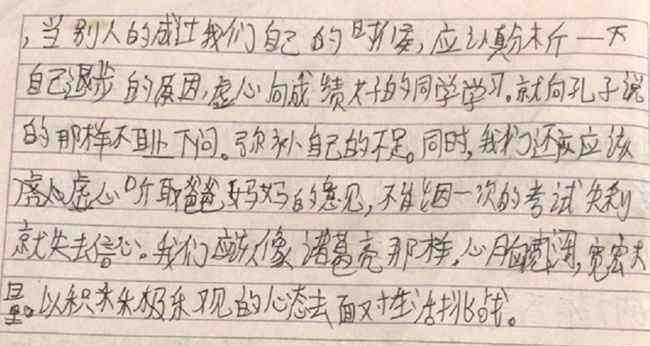 ，当别人的成过我们自己的时候，应认真分析一下
自己退步的原因，虚心向成绩好的同学学习。就向孔子说
的那样不耻下问。弥补自己的不足。同时，我们还应应该
虚心虚心听取爸爸妈妈的意见，不能因一次的考试失利
就失去信心。我们应该像诸葛亮那样，心胸宽阔，宽宏大
量。以积极乐观的心态去面对生活挑战。